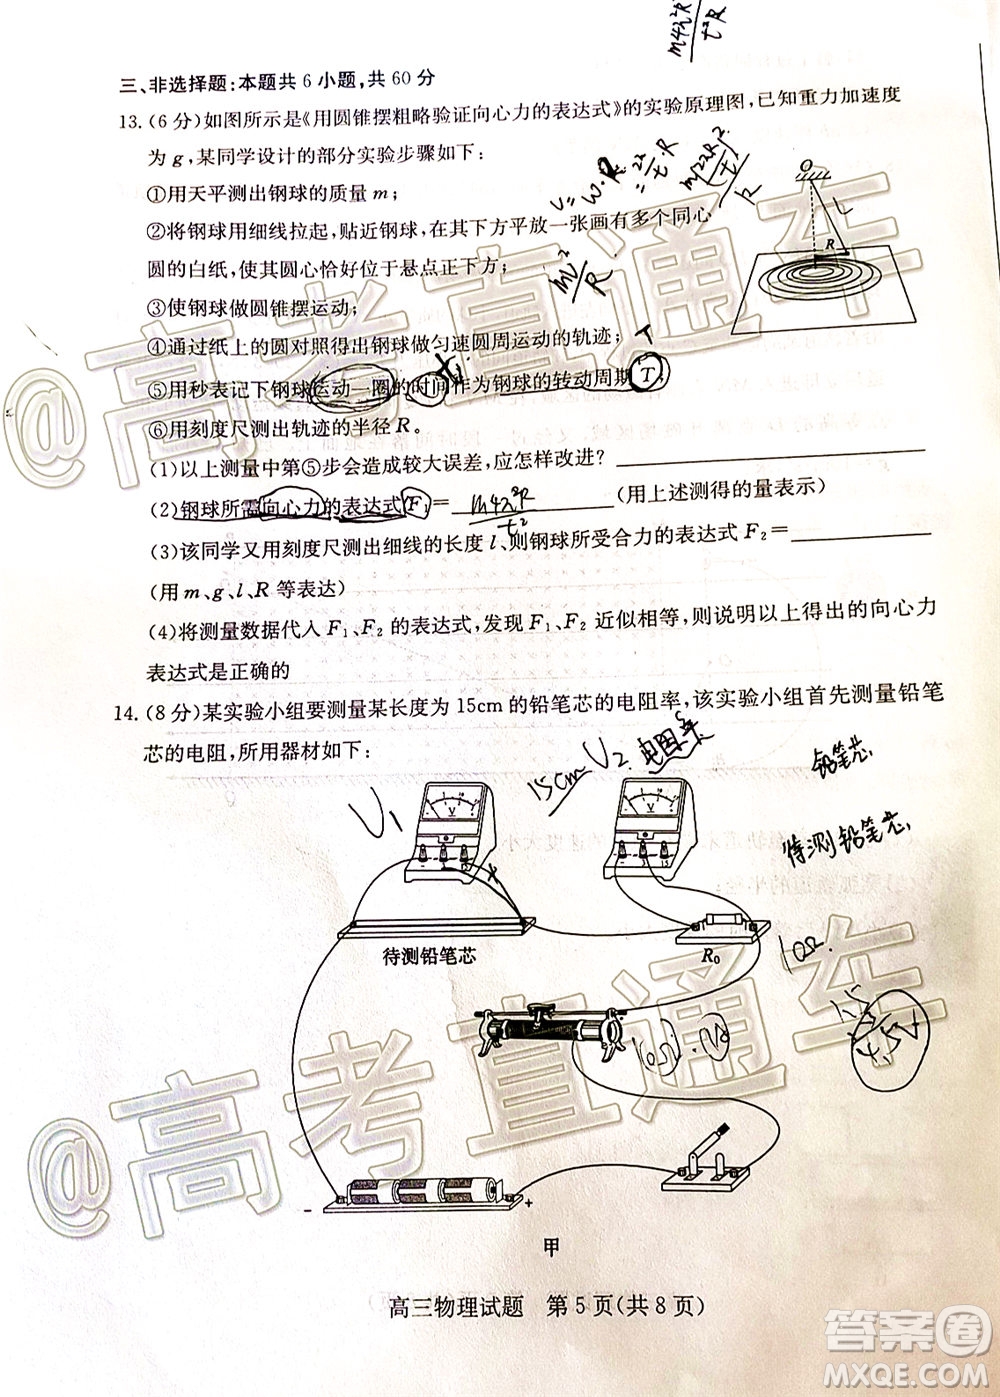 m4π²R
t²R
三、非选择题:本题共 6 小题,共 60 分
13.(6 分)如图所示是《用圆锥摆粗略验证向心力的表达式》的实验原理图,已知重力加速度
为 g,某同学设计的部分实验步骤如下:
①用天平测出钢球的质量 m;
②将钢球用细线拉起,贴近钢球,在其下方平放一张画有多个同心
圆的白纸,使其圆心恰好位于悬点正下方;
③使钢球做圆锥摆运动;
④通过纸上的圆对照得出钢球做匀速圆周运动的轨迹; T
⑤用秒表记下钢球运动一圈的时间作为钢球的转动周期 T;
⑥用刻度尺测出轨迹的半径 R。
O
L
R
(1)以上测量中第⑤步会造成较大误差,应怎样改进?
(2)钢球所需向心力的表达式 F₁= m4π²R/t² (用上述测得的量表示)
(3)该同学又用刻度尺测出细线的长度 l,则钢球所受合力的表达式 F₂=
(用 m、g、l、R 等表达)
(4)将测量数据代入 F₁、F₂ 的表达式,发现 F₁、F₂ 近似相等,则说明以上得出的向心力
表达式是正确的
14.(8 分)某实验小组要测量某长度为 15cm 的铅笔芯的电阻率,该实验小组首先测量铅笔
芯的电阻,所用器材如下:
15cm V₂
铅笔芯
V₁
待测铅笔芯
V
V
待测铅笔芯
R₀
10Ω
- +
甲
高三物理试题 第 5 页(共 8 页)
@高考直通车
@高考直通车
答案圈
MXQE.COM